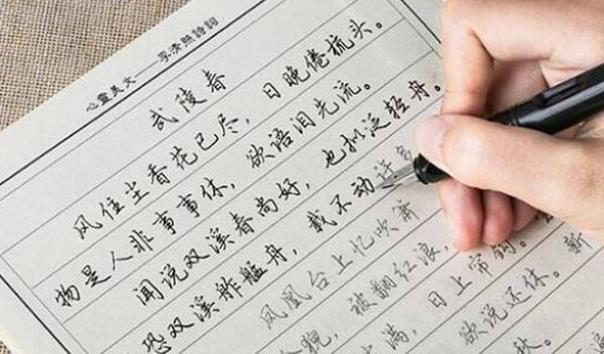 心靈美文——李清照詩詞
武陵春
风住尘香花已尽，日晚倦梳头。
物是人非事事休，欲语泪先流。
闻说双溪春尚好，也拟泛轻舟。
恐双溪舴艋舟，载不动许多
凤凰台上忆吹箫
猊，被翻红浪，
满，日上帘钩。
欲说还休。新